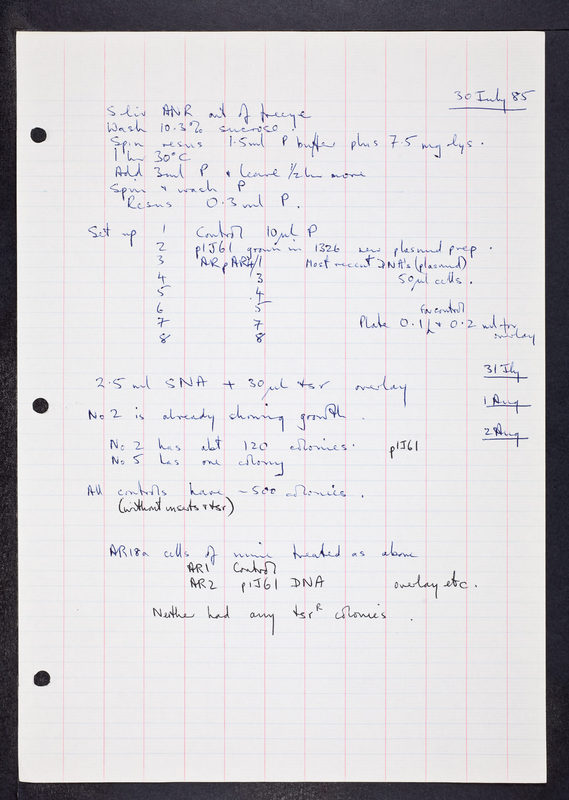 30 July 85
S. liv ANR out of freeze
Wash 10.3% sucrose.
Spin resus 1.5ml P buffer plus 7.5 mg lys.
1 hr 30°C
Add 3ml P + leave 1/2 hr more
Spin + wash P
Resus 0.3 ml P.
Set up 1 Control 10µl P
2 pIJ61 grown in 1326 new plasmid prep.
3 AR pAR2/1 Most recent DNA's (plasmid)
4 3 50µl cells.
5 4
6 5 For control
7 7 Plate 0.1 + 0.2 ml for
8 8 overlay
31 Jly
2.5 ml SNA + 30µl tsr overlay
1 Aug
No 2 is already showing growth.
2 Aug
No 2 has abt 120 colonies. pIJ61
No 5 has one colony
All controls have ~500 colonies.
(without inserts + tsr)
AR18a cells of mine treated as above
AR1 Control
AR2 pIJ61 DNA overlay etc.
Neither had any tsrR colonies.